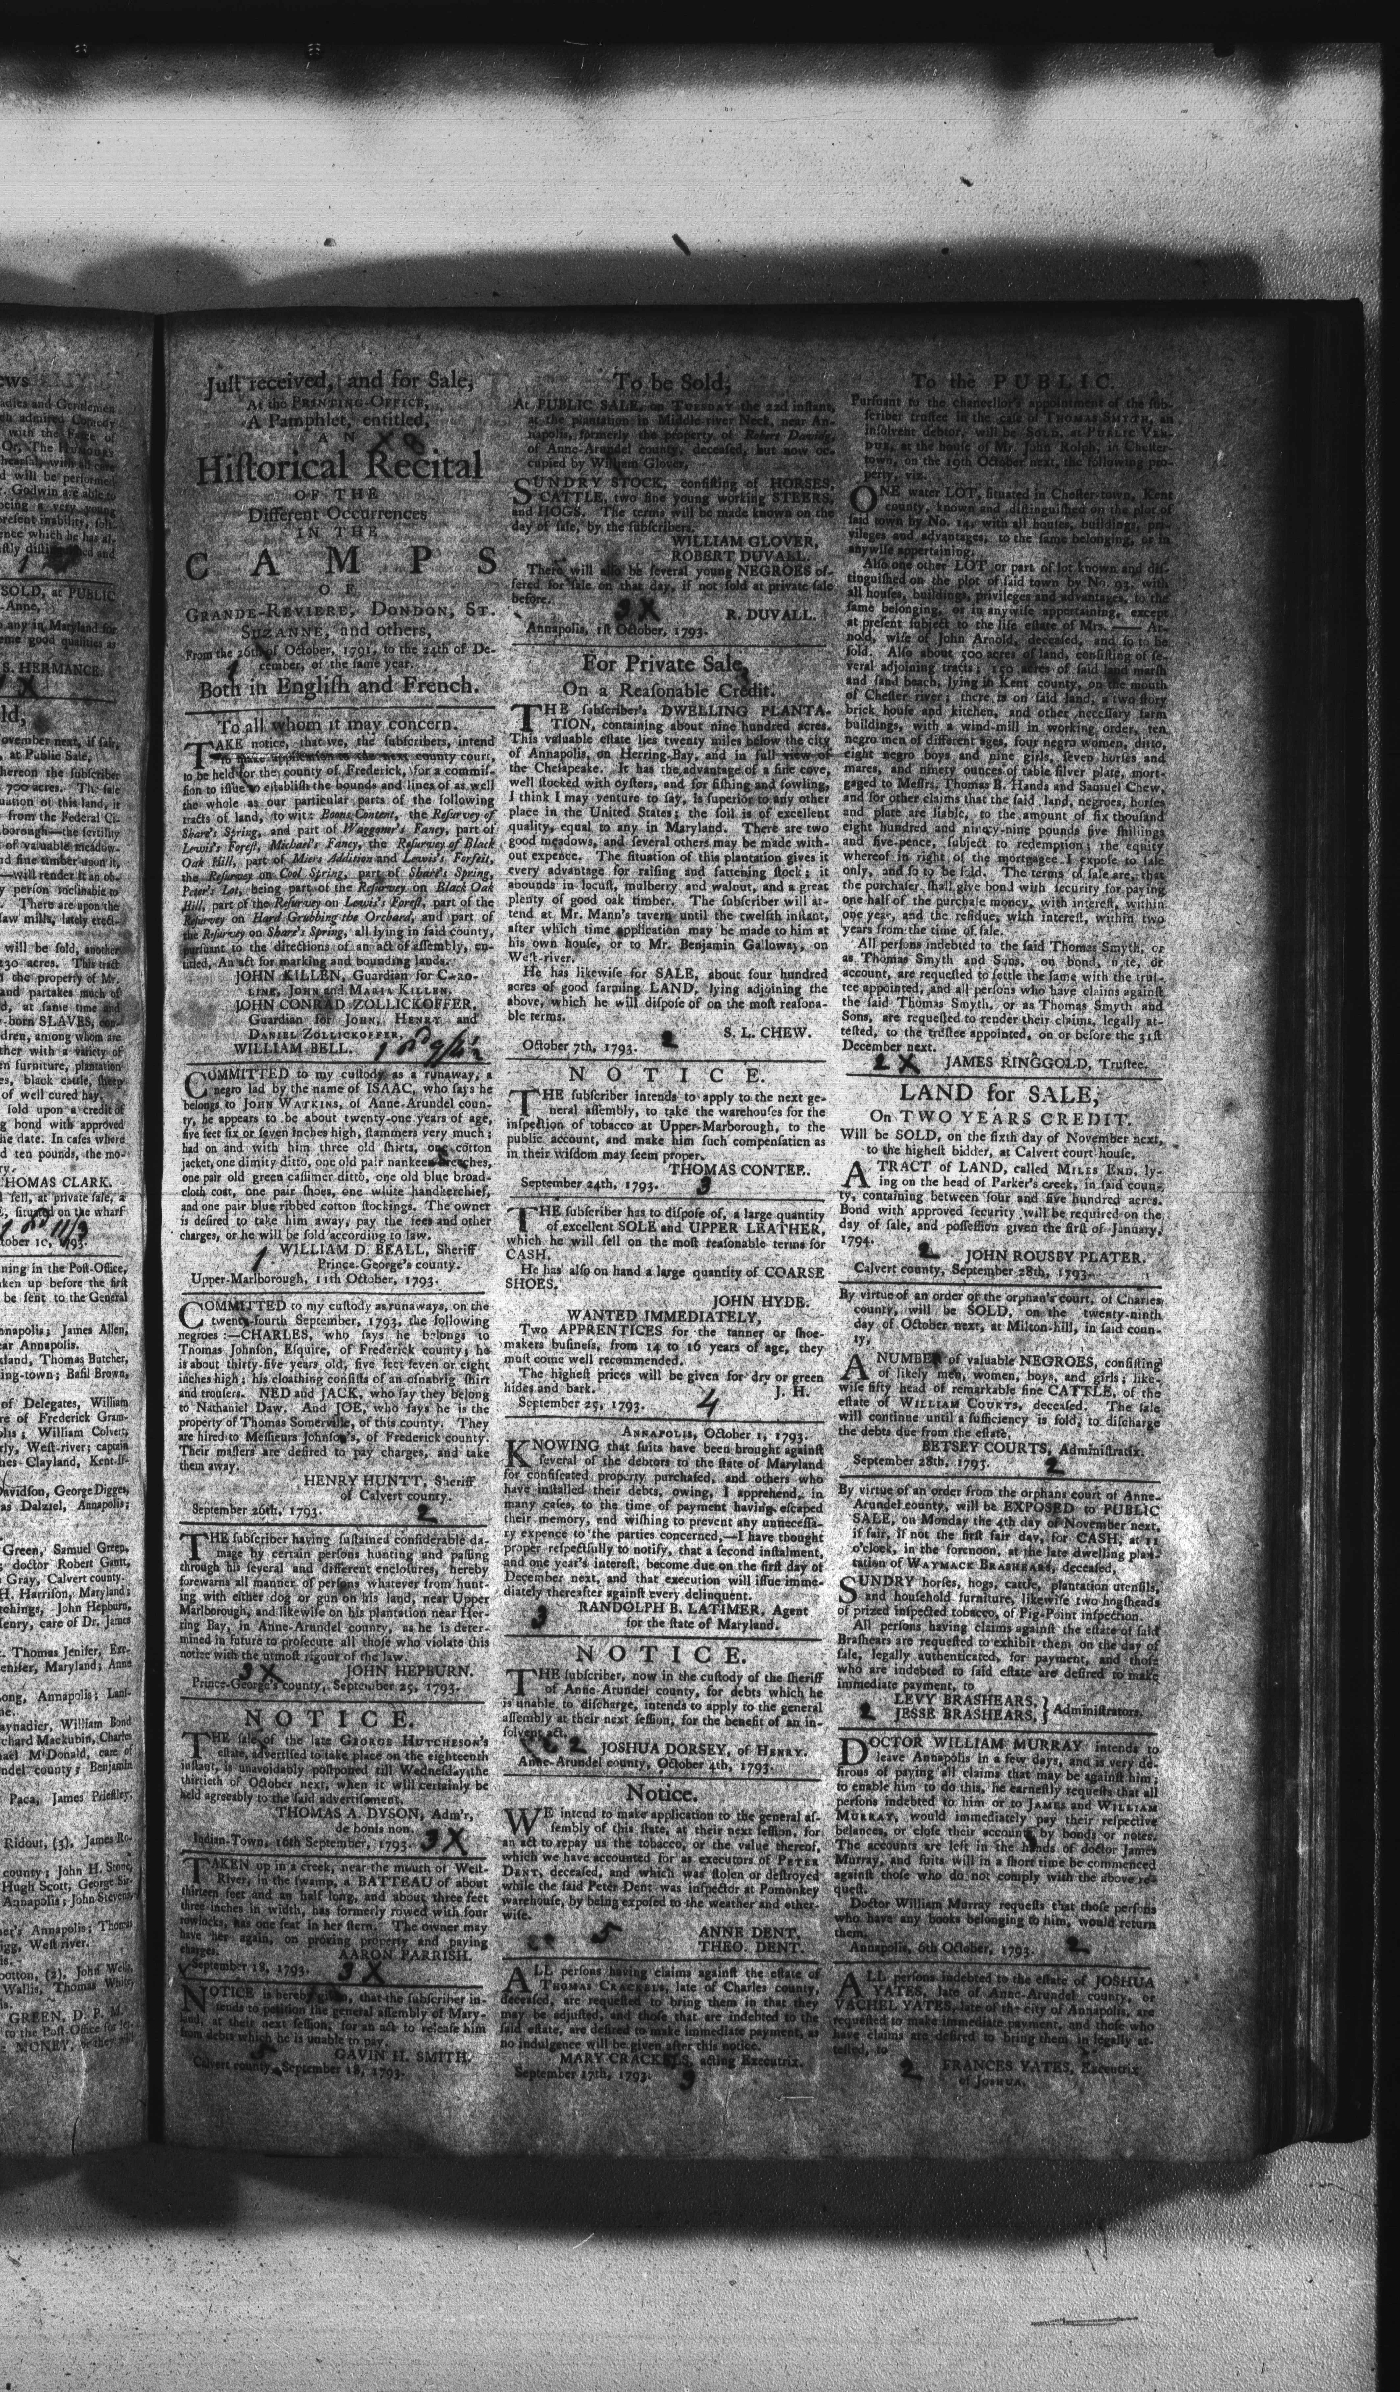 Juſt received, and for Sale,
At the PRINTING-OFFICE,
A Pamphlet, entitled,
AN
Hiſtorical Recital
OF THE
Different Occurrences
IN THE
CAMPS
OF
GRANDE-REVIERE, DONDON, ST.
SUZANNE, and others,
From the 26th of October, 1791, to the 24th of De-
cember, of the ſame year.
Both in Engliſh and French.
To all whom it may concern.
TAKE notice, that we, the ſubſcribers, intend
to make application to the next county court,
to be held for the county of Frederick, for a commiſ-
ſion to iſſue to eſtabliſh the bounds and lines of as well
the whole as our particular parts of the following
tracts of land, to wit: Boons Content, the Reſurvey of
Share's Spring, and part of Waggoner's Fancy, part of
Lewis's Foreſt, Michael's Fancy, the Reſurvey of Black
Oak Hill, part of Miers Addition and Lewis's Forfeit,
the Reſurvey on Cool Spring, part of Share's Spring,
Peter's Lot, being part of the Reſurvey on Black Oak
Hill, part of the Reſurvey on Lewis's Foreſt, part of the
Reſurvey on Hard Grubbing the Orchard, and part of
the Reſurvey on Share's Spring, all lying in ſaid county,
purſuant to the directions of an act of aſſembly, en-
titled, An act for marking and bounding lands.
JOHN KILLEN, Guardian for CARO-
LINE, JOHN and MARIA KILLEN.
JOHN CONRAD ZOLLICKOFFER,
Guardian for JOHN, HENRY and
DANIEL ZOLLICKOFFER.
WILLIAM BELL.
COMMITTED to my cuſtody as a runaway, a
negro lad by the name of ISAAC, who ſays he
belongs to JOHN WATKINS, of Anne-Arundel coun-
ty, he appears to be about twenty-one years of age,
five feet ſix or ſeven inches high, ſtammers very much;
had on and with him three old ſhirts, one cotton
jacket, one dimity ditto, one old pair nankeen breeches,
one pair old green caſſimer ditto, one old blue broad-
cloth coat, one pair ſhoes, one white handkerchief,
and one pair blue ribbed cotton ſtockings. The owner
is deſired to take him away, pay the fees and other
charges, or he will be ſold according to law.
WILLIAM D. BEALL, Sheriff
Prince-George's county.
Upper-Marlborough, 11th October, 1793.
COMMITTED to my cuſtody as runaways, on the
twenty-fourth September, 1793, the following
negroes:—CHARLES, who ſays he belongs to
Thomas Johnſon, Eſquire, of Frederick county; he
is about thirty-five years old, five feet ſeven or eight
inches high; his cloathing conſiſts of an oſnabrig ſhirt
and trouſers. NED and JACK, who ſay they belong
to Nathaniel Daw. And JOE, who ſays he is the
property of Thomas Somerville, of this county. They
are hired to Meſſieurs Johnſon's, of Frederick county.
Their maſters are deſired to pay charges, and take
them away.
HENRY HUNTT, Sheriff
of Calvert county.
September 26th, 1793.
2
THE ſubſcriber having ſuſtained conſiderable da-
mage by certain perſons hunting and paſſing
through his ſeveral and different encloſures, hereby
forewarns all manner of perſons whatever from hunt-
ing with either dog or gun on his land, near Upper
Marlborough, and likewiſe on his plantation near Her-
ring Bay, in Anne-Arundel county, as he is deter-
mined in future to proſecute all thoſe who violate this
notice with the utmoſt rigour of the law.
3X JOHN HEPBURN.
Prince-George's county, September 25, 1793.
NOTICE.
THE ſale of the late GEORGE HUTCHESON's
eſtate, advertiſed to take place on the eighteenth
inſtant, is unavoidably poſtponed till Wedneſday the
thirtieth of October next, when it will certainly be
held agreeably to the ſaid advertiſement.
THOMAS A. DYSON, Adm'r,
de bonis non.
Indian-Town, 16th September, 1793. 3X
TAKEN up in a creek, near the mouth of Weſt-
River, in the ſwamp, a BATTEAU of about
thirteen feet and an half long, and about three feet
three inches in width, has formerly rowed with four
rowlocks, has one ſeat in her ſtern. The owner may
have her again, on proving property and paying
charges. AARON PARRISH.
September 18, 1793. 3X
NOTICE is hereby given, that the ſubſcriber in-
tends to petition the general aſſembly of Mary-
land, at their next ſeſſion, for an act to releaſe him
from debts which he is unable to pay.
GAVIN H. SMITH.
Calvert county, September 18, 1793.
To be Sold,
At PUBLIC SALE, on TUESDAY the 22d inſtant,
at the plantation in Middle-river Neck, near An-
napolis, formerly the property of Robert Davidg,
of Anne-Arundel county, deceaſed, but now oc-
cupied by William Glover,
SUNDRY STOCK, conſiſting of HORSES,
CATTLE, two fine young working STEERS,
and HOGS. The terms will be made known on the
day of ſale, by the ſubſcribers.
WILLIAM GLOVER,
ROBERT DUVALL.
There will alſo be ſeveral young NEGROES of-
fered for ſale on that day, if not ſold at private ſale
before.
R. DUVALL.
Annapolis, 1ſt October, 1793.
For Private Sale,
On a Reaſonable Credit.
THE ſubſcriber's DWELLING PLANTA-
TION, containing about nine hundred acres.
This valuable eſtate lies twenty miles below the city
of Annapolis, on Herring-Bay, and in full view of
the Cheſapeake. It has the advantage of a fine cove,
well ſtocked with oyſters, and for fiſhing and fowling,
I think I may venture to ſay, is ſuperior to any other
place in the United States; the ſoil is of excellent
quality, equal to any in Maryland. There are two
good meadows, and ſeveral others may be made with-
out expence. The ſituation of this plantation gives it
every advantage for raiſing and fattening ſtock; it
abounds in locuſt, mulberry and walnut, and a great
plenty of good oak timber. The ſubſcriber will at-
tend at Mr. Mann's tavern until the twelfth inſtant,
after which time application may be made to him at
his own houſe, or to Mr. Benjamin Galloway, on
Weſt-river.
He has likewiſe for SALE, about four hundred
acres of good farming LAND, lying adjoining the
above, which he will diſpoſe of on the moſt reaſona-
ble terms.
S. L. CHEW.
October 7th, 1793. 2
NOTICE.
THE ſubſcriber intends to apply to the next ge-
neral aſſembly, to take the warehouſes for the
inſpection of tobacco at Upper-Marborough, to the
public account, and make him ſuch compenſation as
in their wiſdom may ſeem proper.
THOMAS CONTEE.
September 24th, 1793. 3
THE ſubſcriber has to diſpoſe of, a large quantity
of excellent SOLE and UPPER LEATHER,
which he will ſell on the moſt reaſonable terms for
CASH.
He has alſo on hand a large quantity of COARSE
SHOES.
JOHN HYDE.
WANTED IMMEDIATELY,
Two APPRENTICES for the tanner or ſhoe-
makers buſineſs, from 14 to 16 years of age, they
muſt come well recommended.
The higheſt prices will be given for dry or green
hides and bark. J. H.
September 25, 1793. 4
ANNAPOLIS, October 1, 1793.
KNOWING that ſuits have been brought againſt
ſeveral of the debtors to the ſtate of Maryland
for confiſcated property purchaſed, and others who
have inſtalled their debts, owing, I apprehend, in
many caſes, to the time of payment having eſcaped
their memory, and wiſhing to prevent any unneceſſa-
ry expence to the parties concerned,—I have thought
proper reſpectfully to notify, that a ſecond inſtalment,
and one year's intereſt, become due on the firſt day of
December next, and that execution will iſſue imme-
diately thereafter againſt every delinquent.
RANDOLPH B. LATIMER, Agent
3 for the ſtate of Maryland.
NOTICE.
THE ſubſcriber, now in the cuſtody of the ſheriff
of Anne-Arundel county, for debts which he
is unable to diſcharge, intends to apply to the general
aſſembly at their next ſeſſion, for the benefit of an in-
ſolvent act.
JOSHUA DORSEY, of HENRY.
Anne-Arundel county, October 4th, 1793.
Notice.
WE intend to make application to the general aſ-
ſembly of this ſtate, at their next ſeſſion, for
an act to repay us the tobacco, or the value thereof,
which we have accounted for as executors of PETER
DENT, deceaſed, and which was ſtolen or deſtroyed
while the ſaid Peter Dent was inſpector at Pomonkey
warehouſe, by being expoſed to the weather and other-
wiſe.
5 ANNE DENT,
THEO. DENT.
ALL perſons having claims againſt the eſtate of
THOMAS CRACKELS, late of Charles county,
deceaſed, are requeſted to bring them in that they
may be adjuſted, and thoſe that are indebted to the
ſaid eſtate, are deſired to make immediate payment, as
no indulgence will be given after this notice.
MARY CRACKELS, acting Executrix.
September 17th, 1793. 3
To the PUBLIC.
Purſuant to the chancellor's appointment of the ſub-
ſcriber truſtee in the caſe of THOMAS SMYTH, an
inſolvent debtor, will be SOLD, at PUBLIC VEN-
DUE, at the houſe of Mr. John Rolph, in Cheſter-
town, on the 19th October next, the following pro-
perty, viz.
ONE water LOT, ſituated in Cheſter-town, Kent
county, known and diſtinguiſhed on the plot of
ſaid town by No. 14, with all houſes, buildings, pri-
vileges and advantages, to the ſame belonging, or in
anywiſe appertaining.
Alſo one other LOT or part of lot known and diſ-
tinguiſhed on the plot of ſaid town by No. 93, with
all houſes, buildings, privileges and advantages, to the
ſame belonging, or in anywiſe appertaining, except
at preſent ſubject to the life eſtate of Mrs. —— Ar-
nold, wife of John Arnold, deceaſed, and ſo to be
ſold. Alſo about 500 acres of land, conſiſting of ſe-
veral adjoining tracts; 150 acres of ſaid land marſh
and ſand beach, lying in Kent county, on the mouth
of Cheſter river; there is on ſaid land, a two ſtory
brick houſe and kitchen, and other neceſſary farm
buildings, with a wind-mill in working order, ten
negro men of different ages, four negro women, ditto,
eight negro boys and nine girls, ſeven horſes and
mares, and ninety ounces of table ſilver plate, mort-
gaged to Meſſrs. Thomas B. Hands and Samuel Chew,
and for other claims that the ſaid land, negroes, horſes
and plate are liable, to the amount of ſix thouſand
eight hundred and ninety-nine pounds five ſhillings
and five-pence, ſubject to redemption; the equity
whereof in right of the mortgagee I expoſe to ſale
only, and ſo to be ſold. The terms of ſale are, that
the purchaſer ſhall give bond with ſecurity for paying
one half of the purchaſe money, with intereſt, within
one year, and the reſidue, with intereſt, within two
years from the time of ſale.
All perſons indebted to the ſaid Thomas Smyth, or
as Thomas Smyth and Sons, on bond, note, or
account, are requeſted to ſettle the ſame with the truſ-
tee appointed, and all perſons who have claims againſt
the ſaid Thomas Smyth, or as Thomas Smyth and
Sons, are requeſted to render their claims, legally at-
teſted, to the truſtee appointed, on or before the 31ſt
December next.
2X JAMES RINGGOLD, Truſtee.
LAND for SALE,
On TWO YEARS CREDIT.
Will be SOLD, on the ſixth day of November next,
to the higheſt bidder, at Calvert court houſe,
A TRACT of LAND, called MILES END, ly-
ing on the head of Parker's creek, in ſaid coun-
ty, containing between four and five hundred acres.
Bond with approved ſecurity will be required on the
day of ſale, and poſſeſſion given the firſt of January,
1794.
2 JOHN ROUSBY PLATER.
Calvert county, September 28th, 1793.
By virtue of an order of the orphan's court, of Charles
county, will be SOLD, on the twenty-ninth
day of October next, at Milton-hill, in ſaid coun-
ty,
A NUMBER of valuable NEGROES, conſiſting
of likely men, women, boys, and girls; like-
wiſe fifty head of remarkable fine CATTLE, of the
eſtate of WILLIAM COURTS, deceaſed. The ſale
will continue until a ſufficiency is ſold, to diſcharge
the debts due from the eſtate.
BETSEY COURTS, Adminiſtratix.
September 28th, 1793. 2
By virtue of an order from the orphans court of Anne-
Arundel county, will be EXPOSED to PUBLIC
SALE, on Monday the 4th day of November next,
if fair, if not the firſt fair day, for CASH, at 11
o'clock, in the forenoon, at the late dwelling plan-
tation of WAYMACK BRASHEARS, deceaſed,
SUNDRY horſes, hogs, cattle, plantation utenſils,
and houſehold furniture, likewiſe two hogſheads
of prized inſpected tobacco, of Pig-Point inſpection.
All perſons having claims againſt the eſtate of ſaid
Braſhears are requeſted to exhibit them on the day of
ſale, legally authenticated, for payment, and thoſe
who are indebted to ſaid eſtate are deſired to make
immediate payment, to
LEVY BRASHEARS,
JESSE BRASHEARS, } Adminiſtrators.
2
DOCTOR WILLIAM MURRAY intends to
leave Annapolis in a few days, and is very de-
ſirous of paying all claims that may be againſt him;
to enable him to do this, he earneſtly requeſts that all
perſons indebted to him or to JAMES and WILLIAM
MURRAY, would immediately pay their reſpective
balances, or cloſe their accounts by bonds or notes.
The accounts are left in the hands of doctor James
Murray, and ſuits will in a ſhort time be commenced
againſt thoſe who do not comply with the above re-
queſt.
Doctor William Murray requeſts that thoſe perſons
who have any books belonging to him, would return
them.
Annapolis, 6th October, 1793. 2
ALL perſons indebted to the eſtate of JOSHUA
YATES, late of Anne-Arundel county, or
VACHEL YATES, late of the city of Annapolis, are
requeſted to make immediate payment, and thoſe who
have claims are deſired to bring them in legally at-
teſted, to
2 FRANCES YATES, Executrix
of JOSHUA.